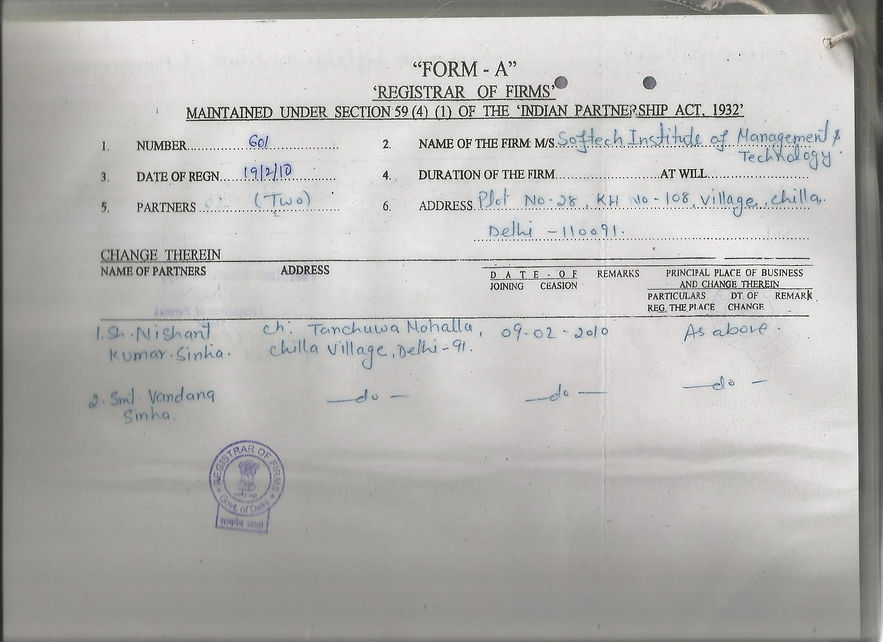 "FORM - A"
'REGISTRAR OF FIRMS'
MAINTAINED UNDER SECTION 59 (4) (1) OF THE 'INDIAN PARTNERSHIP ACT, 1932'
1. NUMBER 601 2. NAME OF THE FIRM: M/S. Softech Institute of Management &
Technology.
3. DATE OF REGN. 19/2/10 4. DURATION OF THE FIRM AT WILL
5. PARTNERS (Two) 6. ADDRESS Plot No-28, KH No-108, Village, chilla,
Delhi -110091.
CHANGE THEREIN
NAME OF PARTNERS ADDRESS DATE-OF REMARKS PRINCIPAL PLACE OF BUSINESS
JOINING CEASION AND CHANGE THEREIN
PARTICULARS DT. OF REMARK
REG. THE PLACE CHANGE
1. Sh. Nishant ch. Tanchuwa Mohalla, 09-02-2010 As above.
Kumar Sinha. chilla Village, Delhi-91.
2. Smt. Vandana —do— —do— —do—
Sinha.
REGISTRAR OF FIRMS
Govt. of Delhi
सत्यमेव जयते